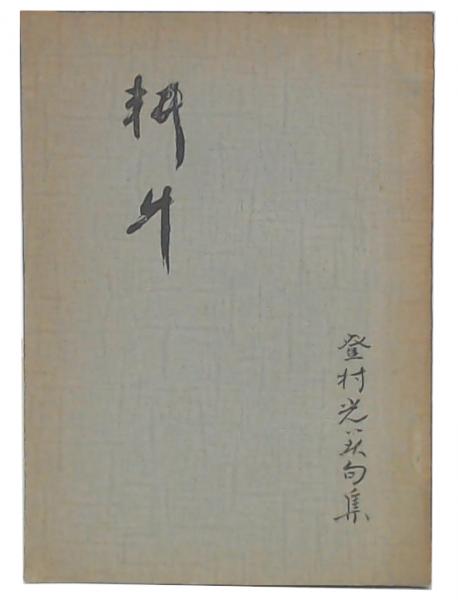 耕牛
登村光美句集